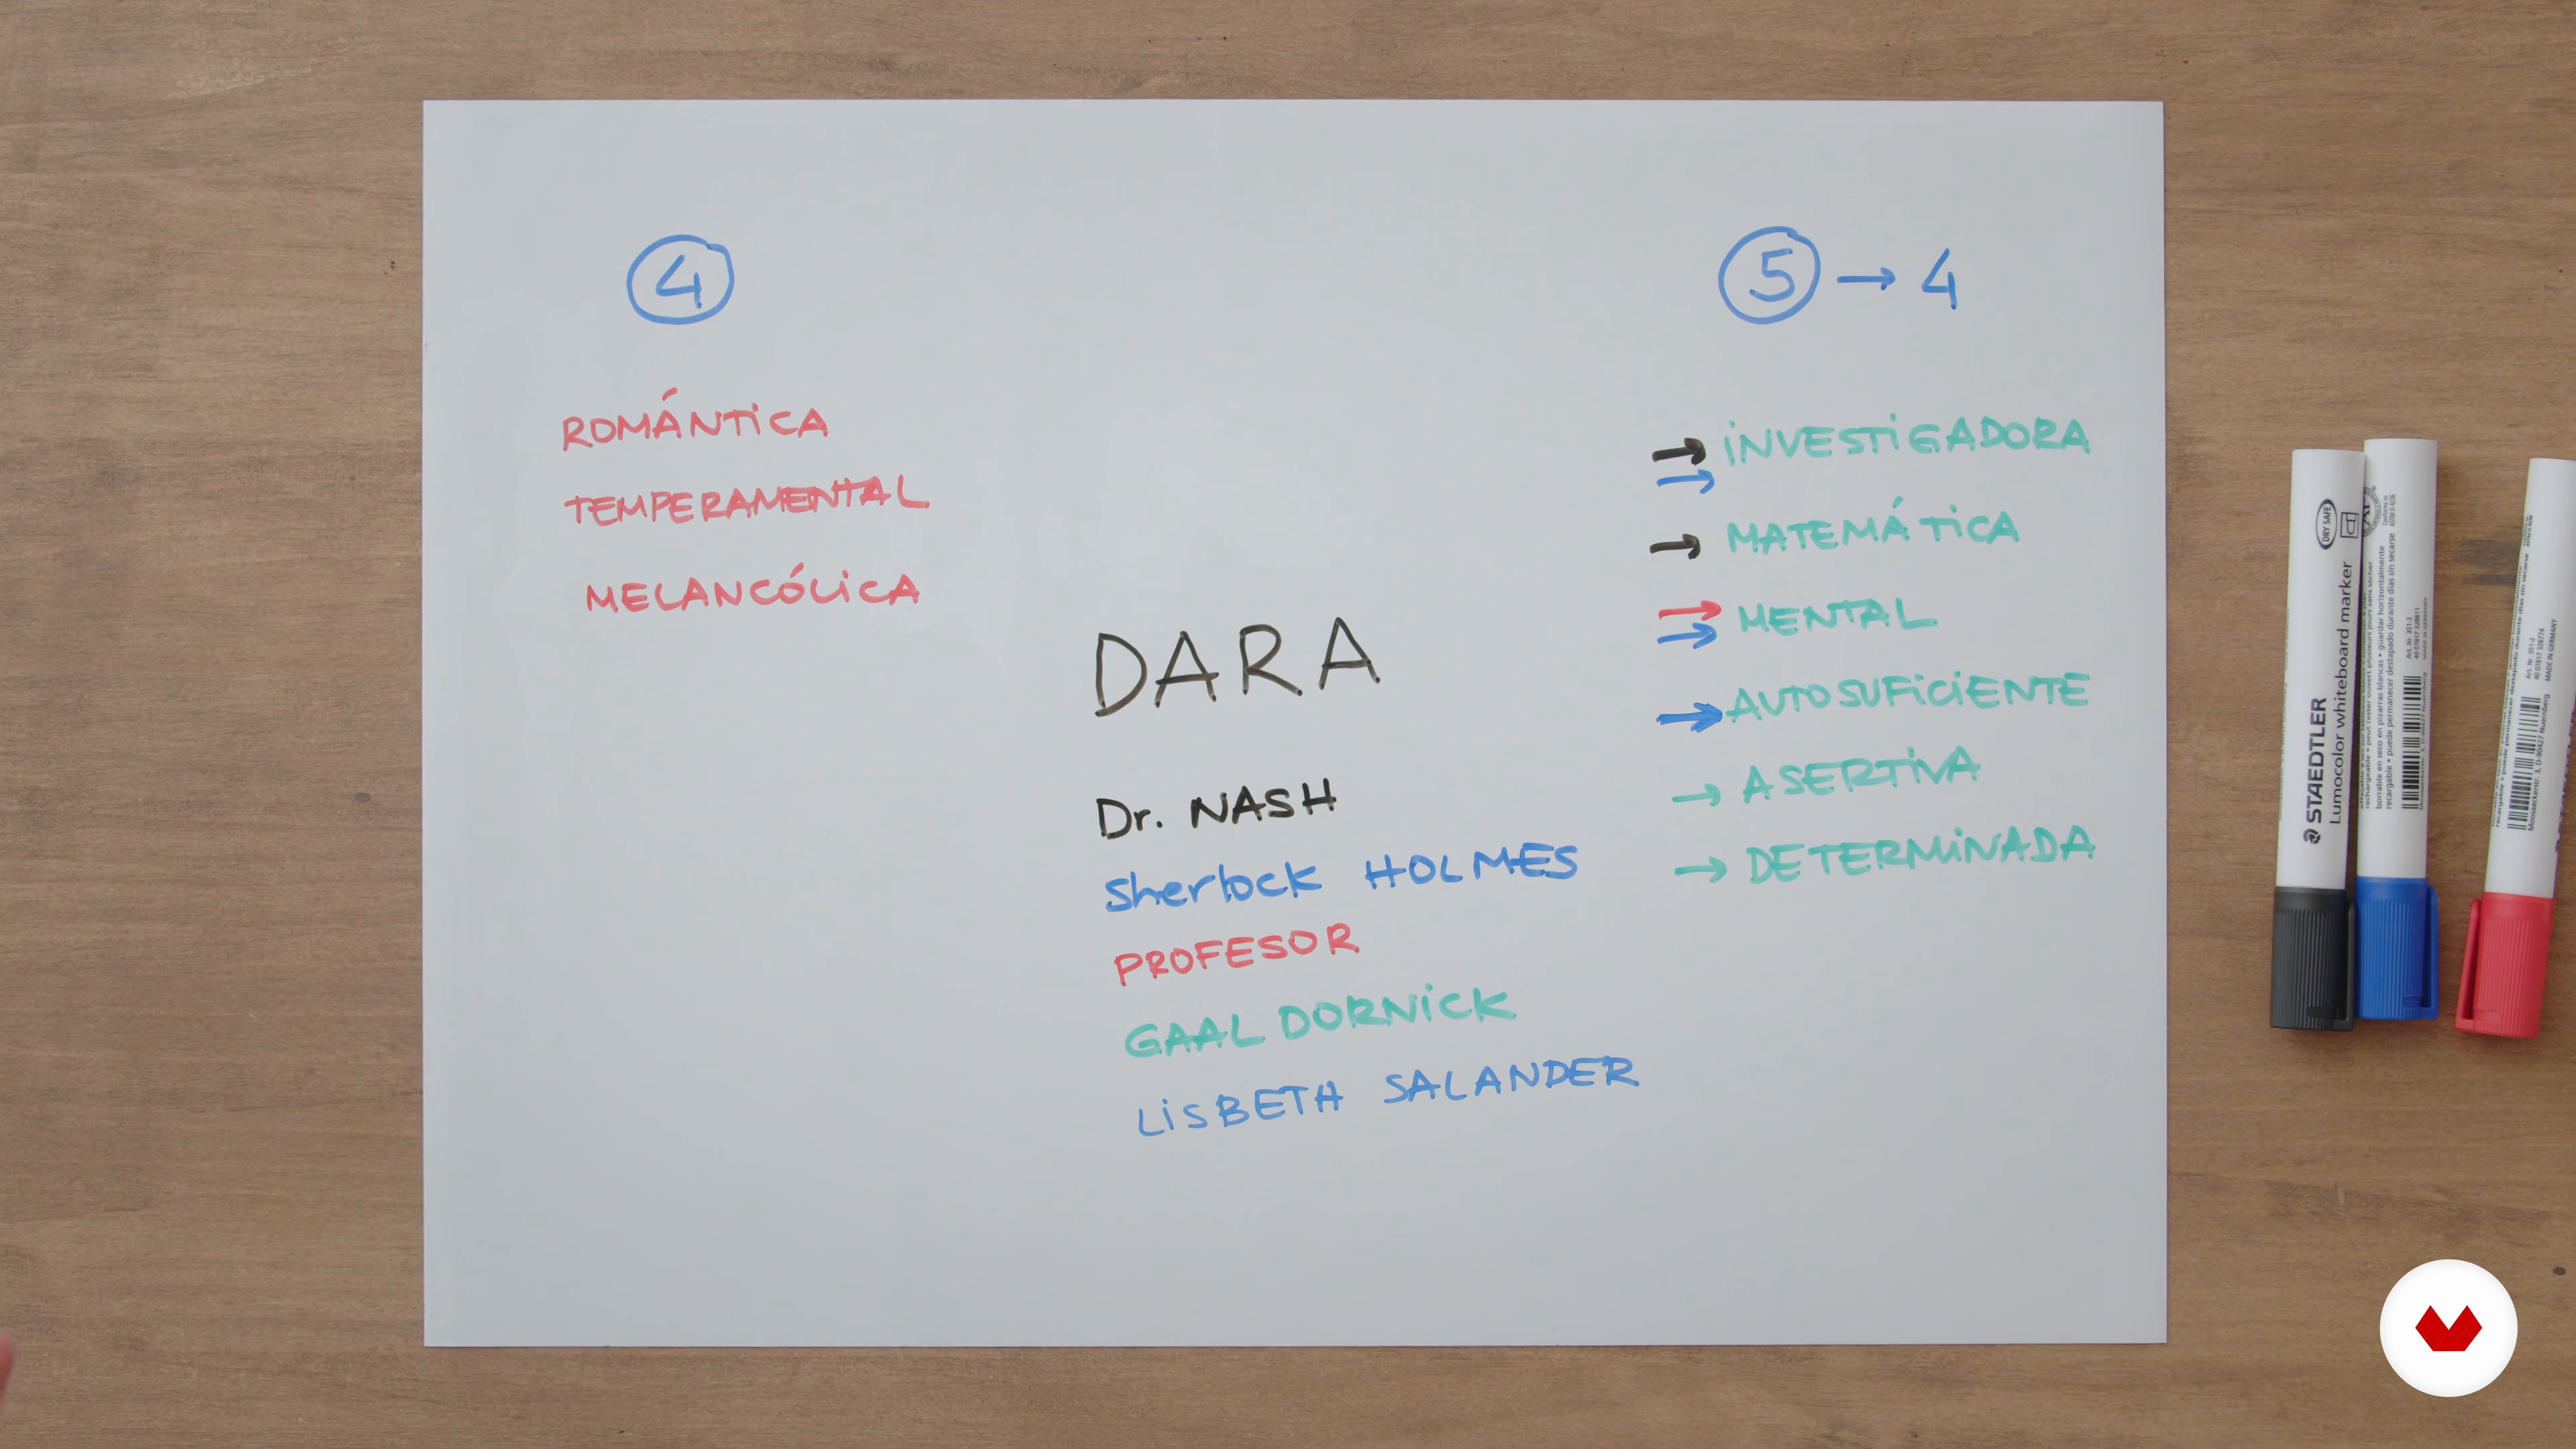 4
ROMÁNTICA
TEMPERAMENTAL
MELANCÓLICA
DARA
Dr. NASH
Sherlock HOLMES
PROFESOR
GAAL DORNICK
LISBETH SALANDER
5 → 4
→ INVESTIGADORA
→
→ MATEMÁTICA
→ MENTAL
→
→ AUTOSUFICIENTE
→ ASERTIVA
→ DETERMINADA
STAEDTLER
Lumocolor whiteboard marker
DRY SAFE